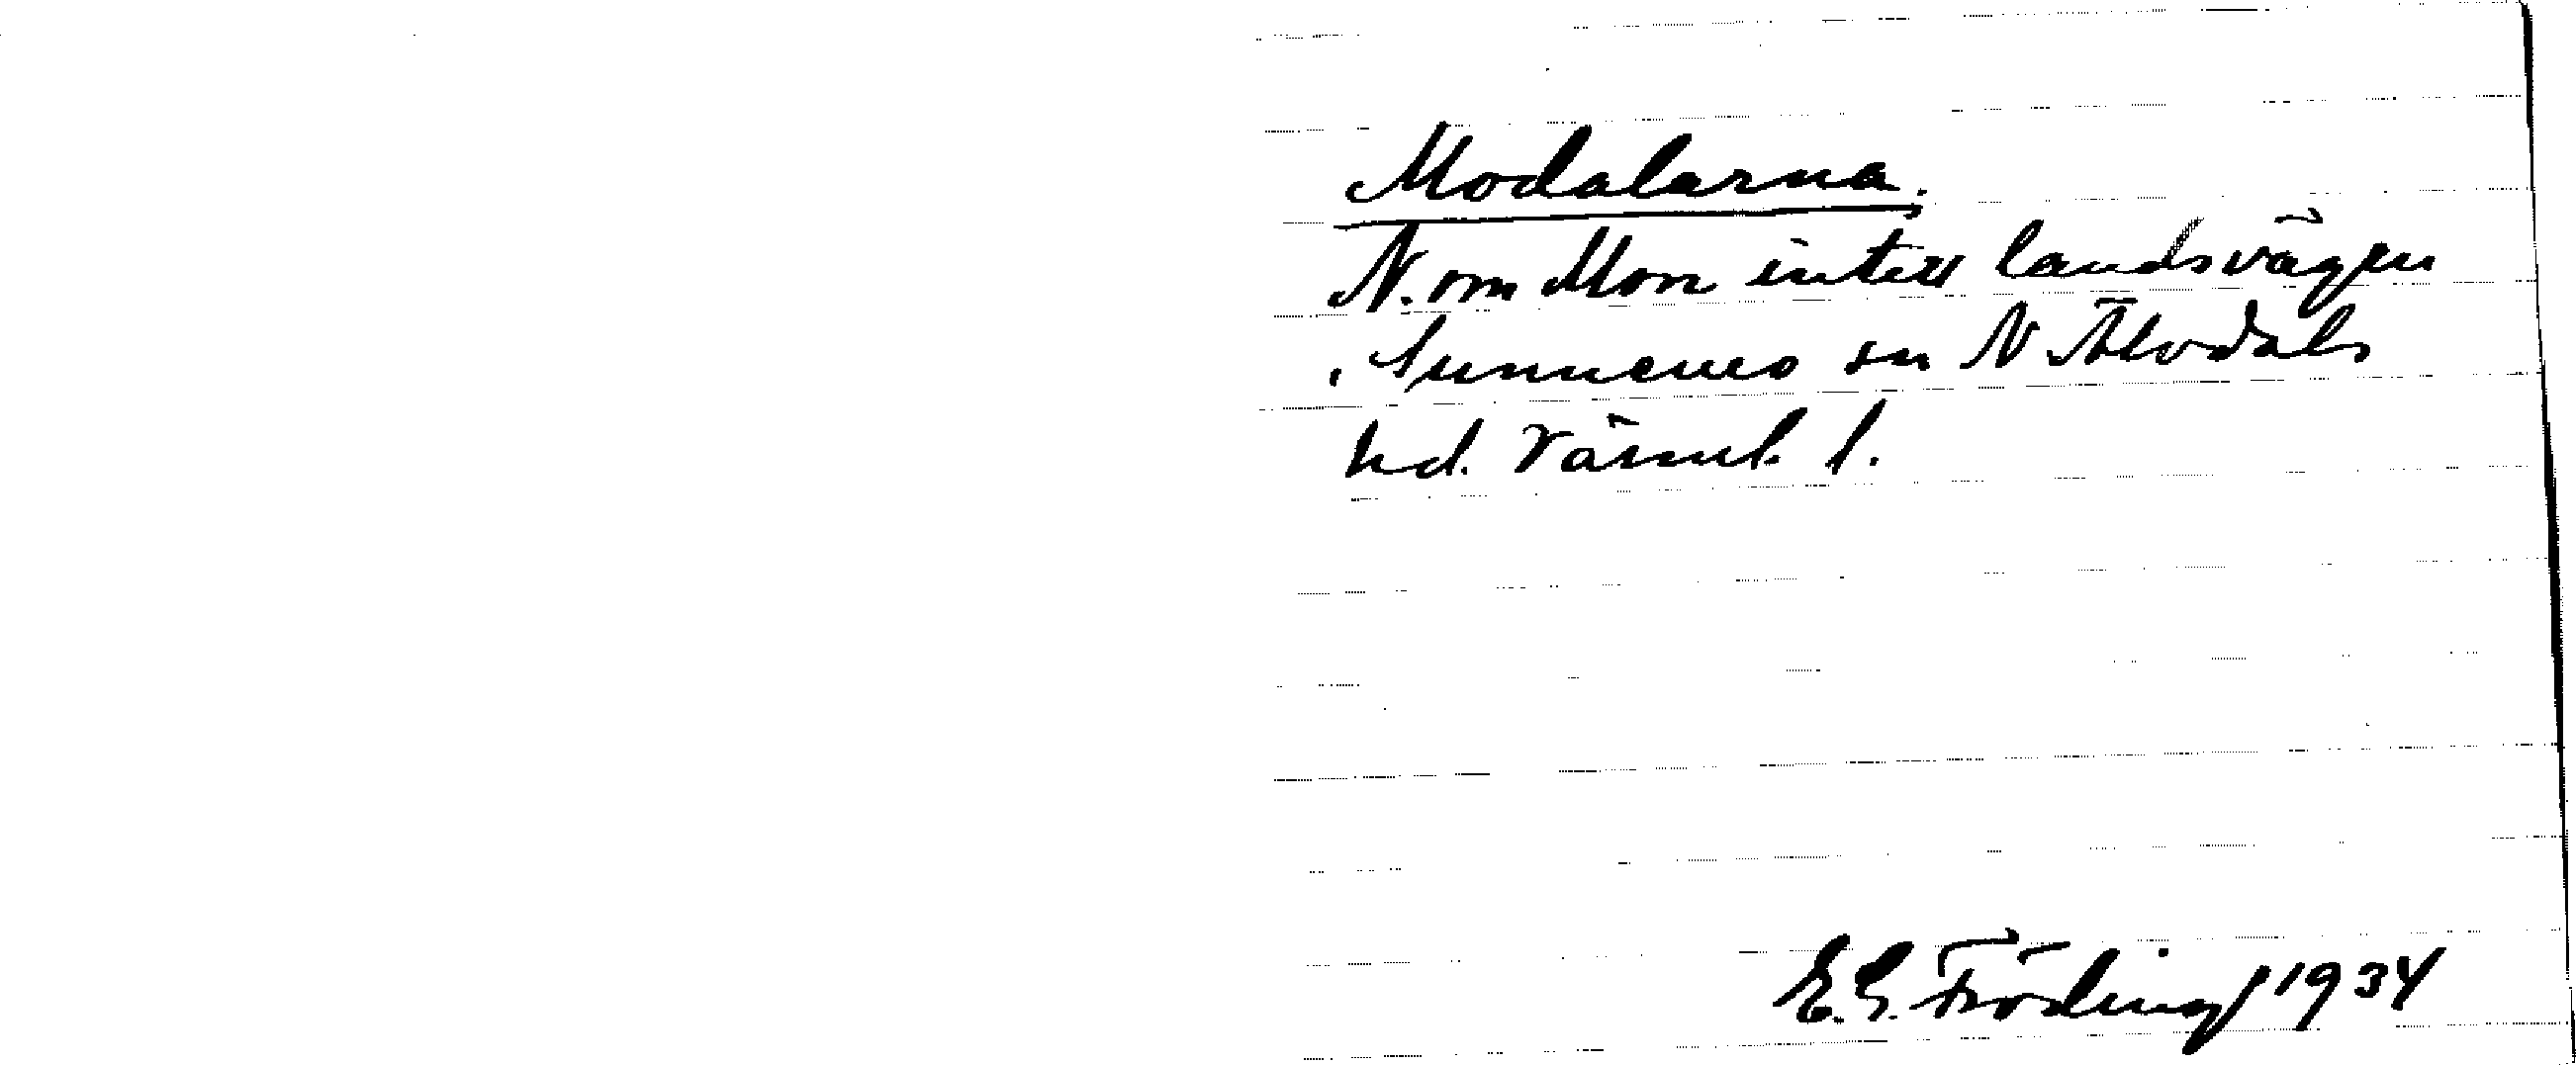 Modalarna.
N. om Mon intill landsvägen
i Sunnemo sn N Älvdals
hd. Värml. l.
E. G. Fröding 1934